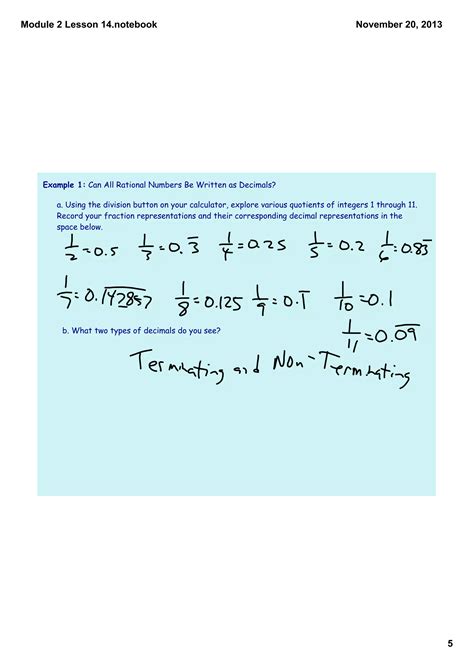 Module 2 Lesson 14.notebook November 20, 2013
Example 1: Can All Rational Numbers Be Written as Decimals?
a. Using the division button on your calculator, explore various quotients of integers 1 through 11.
Record your fraction representations and their corresponding decimal representations in the
space below.
1/2 = 0.5 1/3 = 0.3̅ 1/4 = 0.25 1/5 = 0.2 1/6 = 0.83̅
1/7 = 0.1̅4̅2̅8̅5̅7̅ 1/8 = 0.125 1/9 = 0.1̅ 1/10 = 0.1
b. What two types of decimals do you see?
1/11 = 0.0̅9̅
Terminating and Non-Terminating
5